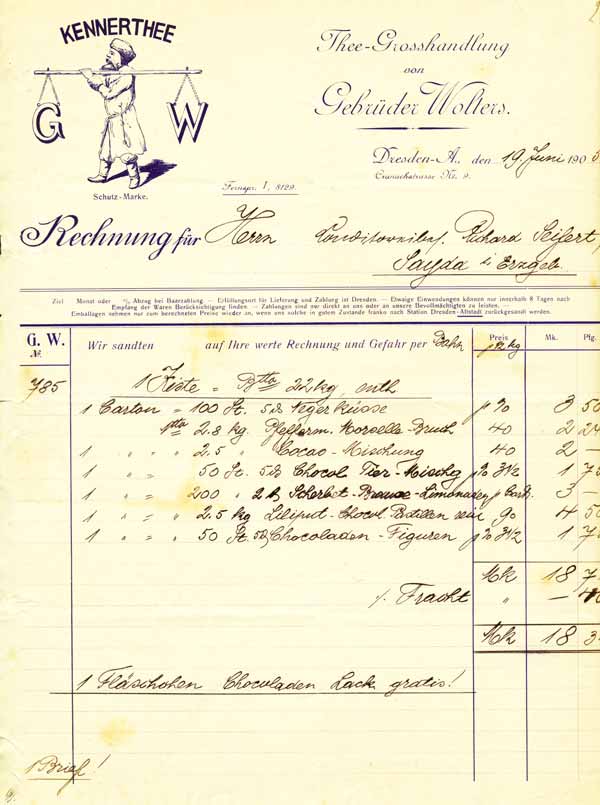 KENNERTHEE
G W
Schutz-Marke.
Thee-Grosshandlung
von
Gebrüder Wolters.
Dresden-A., den 19. Juni 190
Cranachstrasse Nr. 9.
Fernspr. I, 8129.
Rechnung für Herrn Conditoreibes. Richard Seifert,
Sayda i Erzgeb.
Ziel Monat oder % Abzug bei Barzahlung. — Erfüllungsort für Lieferung und Zahlung ist Dresden. — Etwaige Einwendungen können nur innerhalb 8 Tagen nach
Empfang der Waren Berücksichtigung finden. — Zahlungen sind nur direkt an uns oder an unsere Bevollmächtigten zu leisten. —
Emballagen nehmen nur zum berechneten Preise wieder an, wenn uns solche in gutem Zustande franko nach Station Dresden-Altstadt zurückgesandt werden.
G. W. № Wir sandten auf Ihre werte Rechnung und Gefahr per Bahn Preis p ½ kg Mk. Pfg.
785 1 Kiste = Btto 22 kg enth
1 Carton = 100 St. 5 Negerküsse p % 3 50
1 2.8 kg. Pfefferm. Morselle-Bruch 40 2 24
1 " " " 2.5 " Cocao-Mischung 40 2 —
1 " = " 50 St. 5 Chocol Tier-Mischg p % 3½ 1 7
1 " = " 200 " 2 Scherbet-Brause-Limonaden p Cart. 3 —
1 " = " 2.5 kg Liliput-Chocol 90 4 50
1 " = " 50 St. 5 Chocoladen-Figuren p % 3½ 1 7
Mk 18 7
Fracht " —
Mk 18 3
1 Fläschchen Chocoladen Lack gratis!
1 Brief!